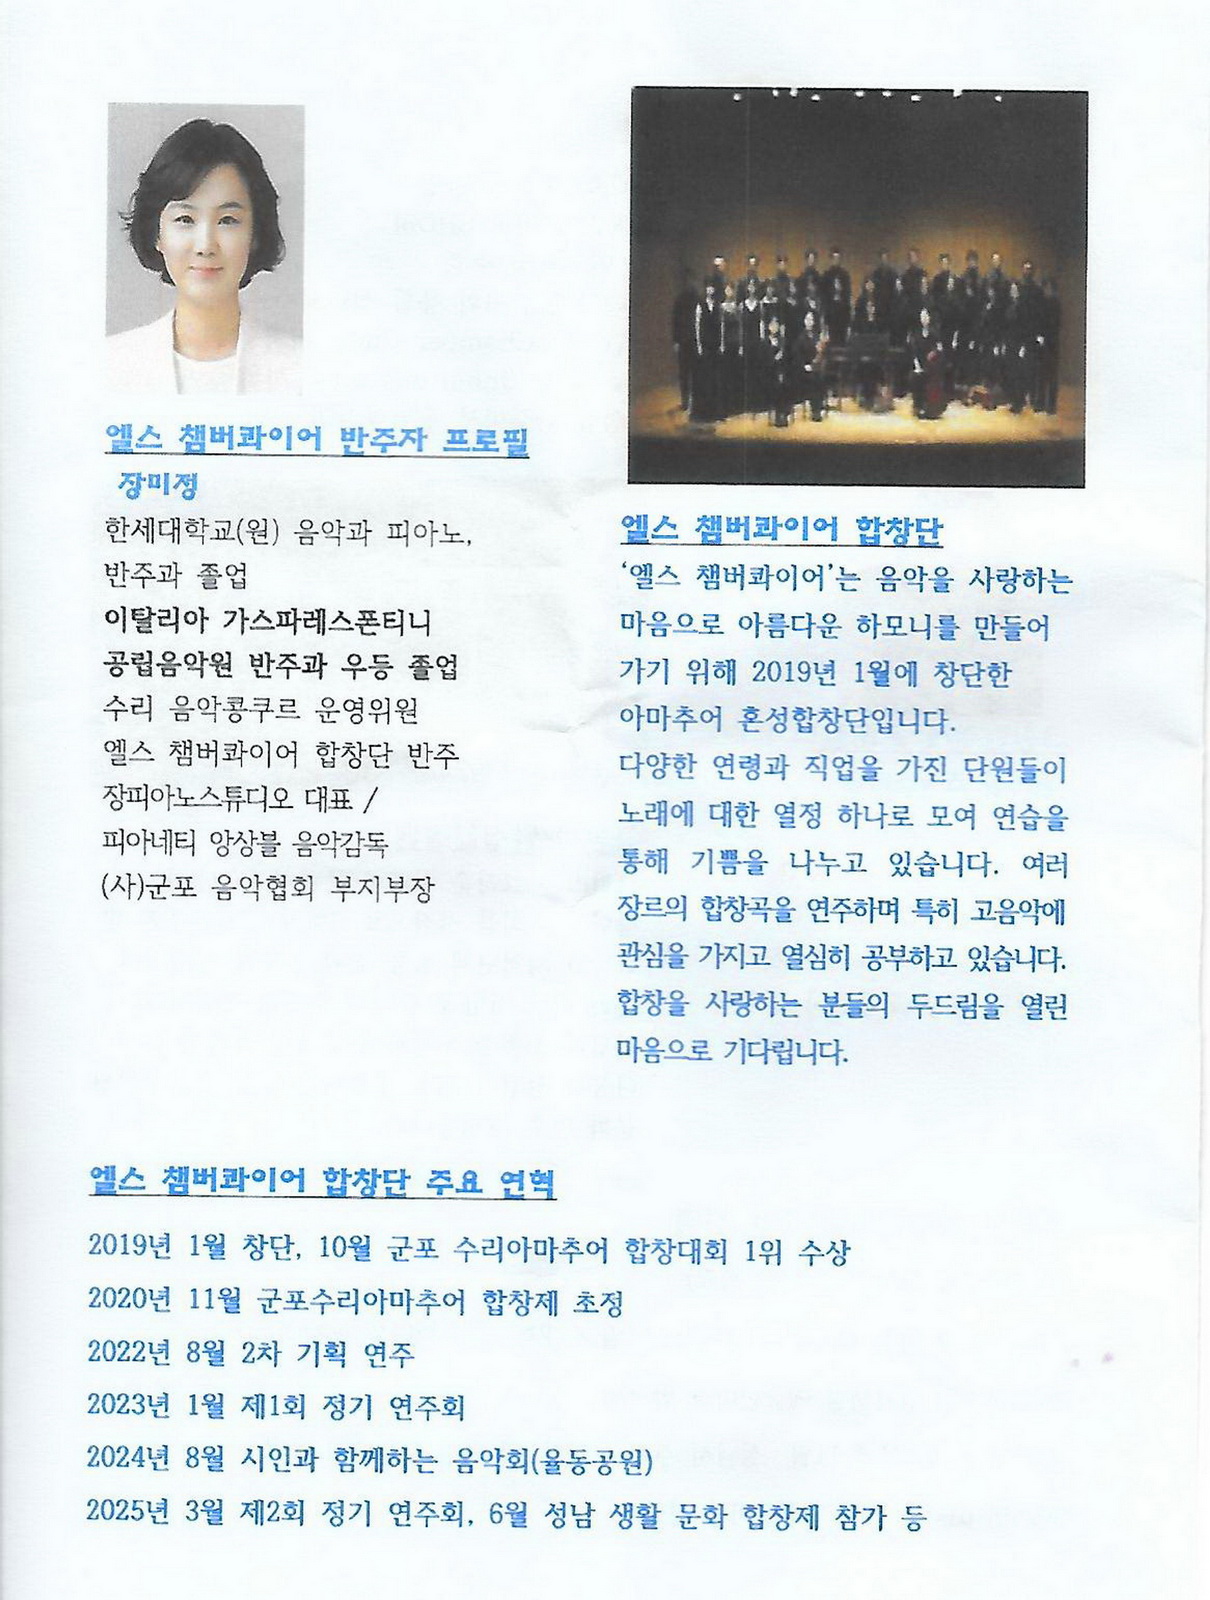 엘스 챔버콰이어 반주자 프로필
장미정
한세대학교(원) 음악과 피아노,
반주과 졸업
이탈리아 가스파레스폰티니
공립음악원 반주과 우등 졸업
수리 음악콩쿠르 운영위원
엘스 챔버콰이어 합창단 반주
장피아노스튜디오 대표 /
피아네티 앙상블 음악감독
(사)군포 음악협회 부지부장
엘스 챔버콰이어 합창단
‘엘스 챔버콰이어’는 음악을 사랑하는
마음으로 아름다운 하모니를 만들어
가기 위해 2019년 1월에 창단한
아마추어 혼성합창단입니다.
다양한 연령과 직업을 가진 단원들이
노래에 대한 열정 하나로 모여 연습을
통해 기쁨을 나누고 있습니다. 여러
장르의 합창곡을 연주하며 특히 고음악에
관심을 가지고 열심히 공부하고 있습니다.
합창을 사랑하는 분들의 두드림을 열린
마음으로 기다립니다.
엘스 챔버콰이어 합창단 주요 연혁
2019년 1월 창단, 10월 군포 수리아마추어 합창대회 1위 수상
2020년 11월 군포수리아마추어 합창제 초정
2022년 8월 2차 기획 연주
2023년 1월 제1회 정기 연주회
2024년 8월 시인과 함께하는 음악회(율동공원)
2025년 3월 제2회 정기 연주회, 6월 성남 생활 문화 합창제 참가 등